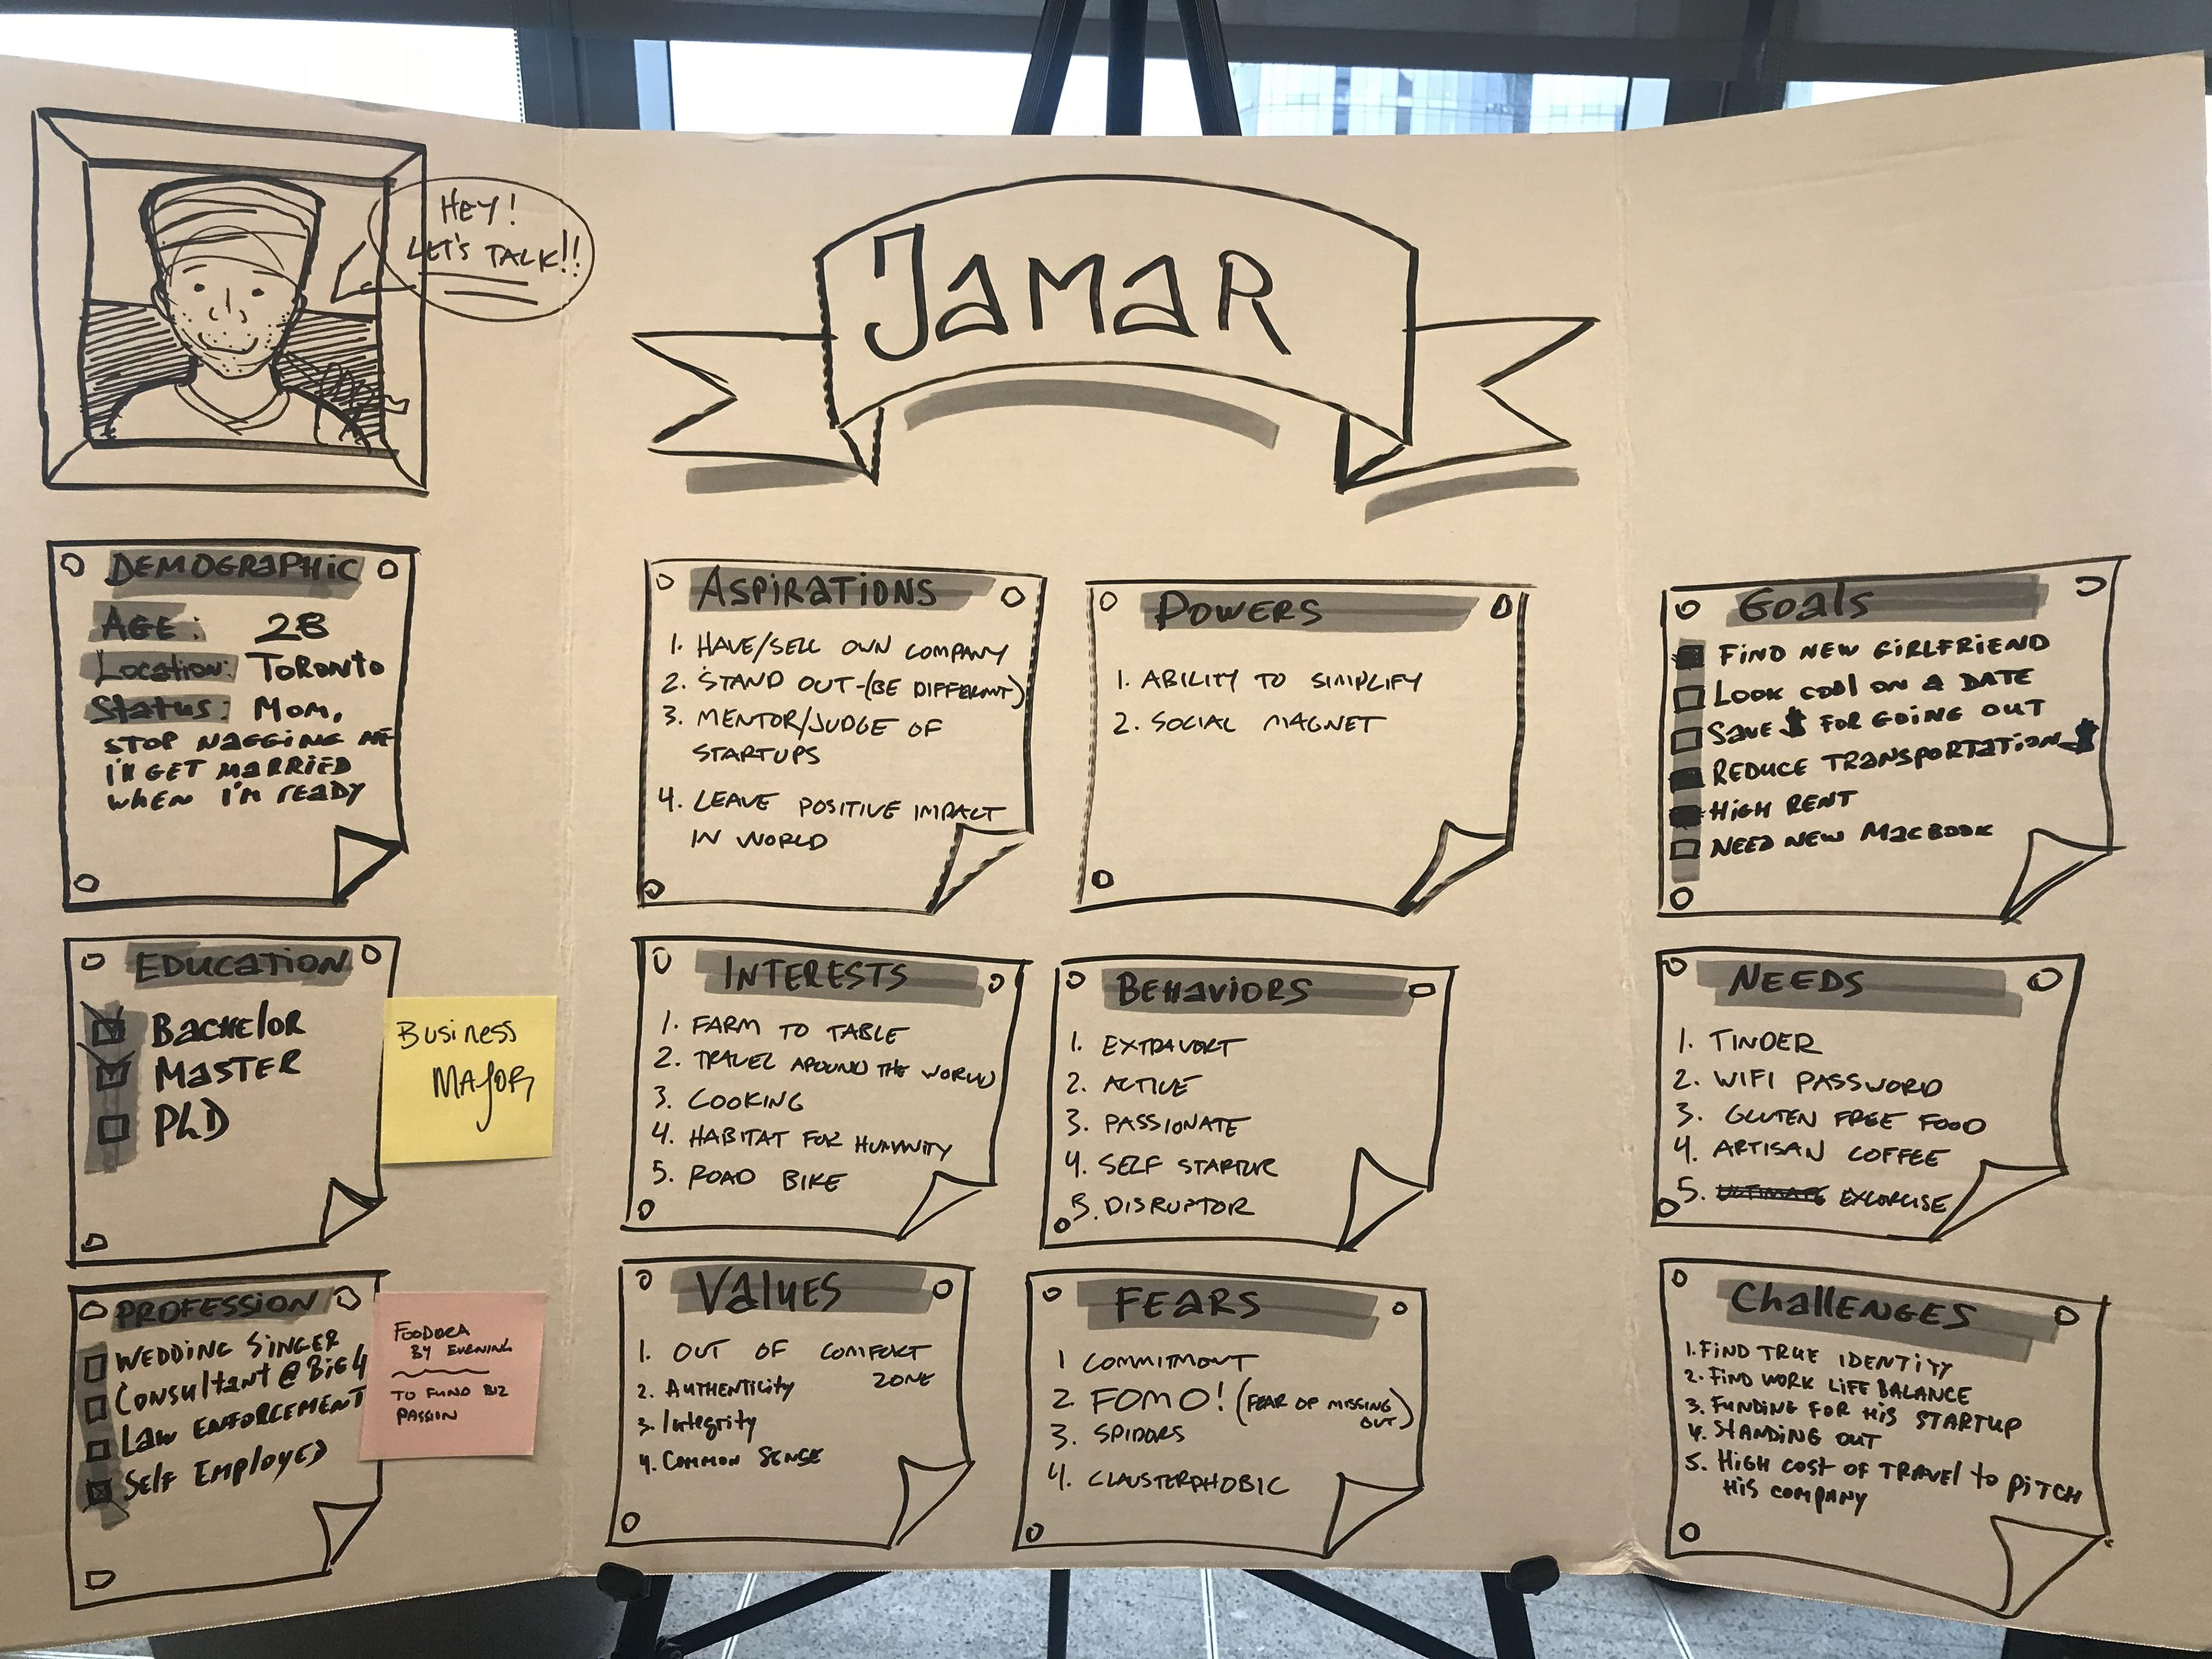 HEY!
LET'S TALK!!
JAMAR
DEMOGRAPHIC
AGE: 28
Location: TORONTO
Status: MOM,
STOP NAGGING ME
I'll GET MARRIED
WHEN I'M READY
EDUCATION
BACHELOR
MASTER
PhD
BUSINESS
MAJOR
PROFESSION
WEDDING SINGER
Consultant @ BIG 4
LAW ENFORCEMENT
Self Employed
FOODORA
BY EVENING
TO FUND BIZ
PASSION
ASPIRATIONS
1. HAVE/SELL OWN COMPANY
2. STAND OUT-(BE DIFFERENT)
3. MENTOR/JUDGE OF
STARTUPS
4. LEAVE POSITIVE IMPACT
IN WORLD
POWERS
1. ABILITY TO SIMPLIFY
2. SOCIAL MAGNET
INTERESTS
1. FARM TO TABLE
2. TRAVEL AROUND THE WORLD
3. COOKING
4. HABITAT FOR HUMANITY
5. ROAD BIKE
BEHAVIORS
1. EXTRAVERT
2. ACTIVE
3. PASSIONATE
4. SELF STARTER
5. DISRUPTOR
VALUES
1. OUT OF COMFORT
ZONE
2. AUTHENTICITY
3. Integrity
4. COMMON SENSE
FEARS
1 COMMITMENT
2. FOMO! (FEAR OF MISSING
OUT)
3. SPIDERS
4. CLAUSTERPHOBIC
Goals
FIND NEW GIRLFRIEND
LOOK COOL ON A DATE
SAVE $ FOR GOING OUT
REDUCE TRANSPORTATION $
HIGH RENT
NEED NEW MACBOOK
NEEDS
1. TINDER
2. WIFI PASSWORD
3. GLUTEN FREE FOOD
4. ARTISAN COFFEE
5. EXCERCISE
Challenges
1. FIND TRUE IDENTITY
2. FIND WORK LIFE BALANCE
3. FUNDING FOR HIS STARTUP
4. STANDING OUT
5. HIGH COST OF TRAVEL to PITCH
HIS COMPANY